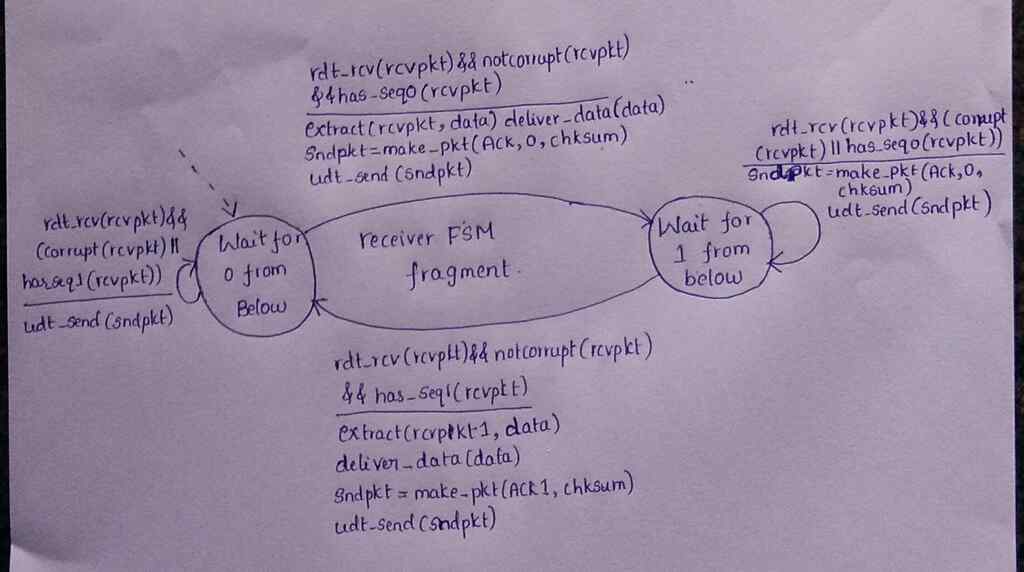 rdt_rcv(rcvpkt) && notcorrupt(rcvpkt)
&& has_seq0(rcvpkt)
extract(rcvpkt, data) deliver_data(data)
Sndpkt=make_pkt(Ack, 0, chksum)
udt_send(sndpkt)
rdt_rcv(rcvpkt)&&(corrupt
(rcvpkt) || has_seq0(rcvpkt))
Sndpkt=make_pkt(Ack,0,
chksum)
udt_send(sndpkt)
rdt_rcv(rcvpkt)&&
(corrupt(rcvpkt) ||
has_seq1(rcvpkt))
udt_send(sndpkt)
Wait for
0 from
Below
receiver FSM
fragment.
Wait for
1 from
below
rdt_rcv(rcvpkt)&& notcorrupt(rcvpkt)
&& has_seq1(rcvpkt)
extract(rcvpkt1, data)
deliver_data(data)
Sndpkt = make_pkt(ACK1, chksum)
udt_send(sndpkt)